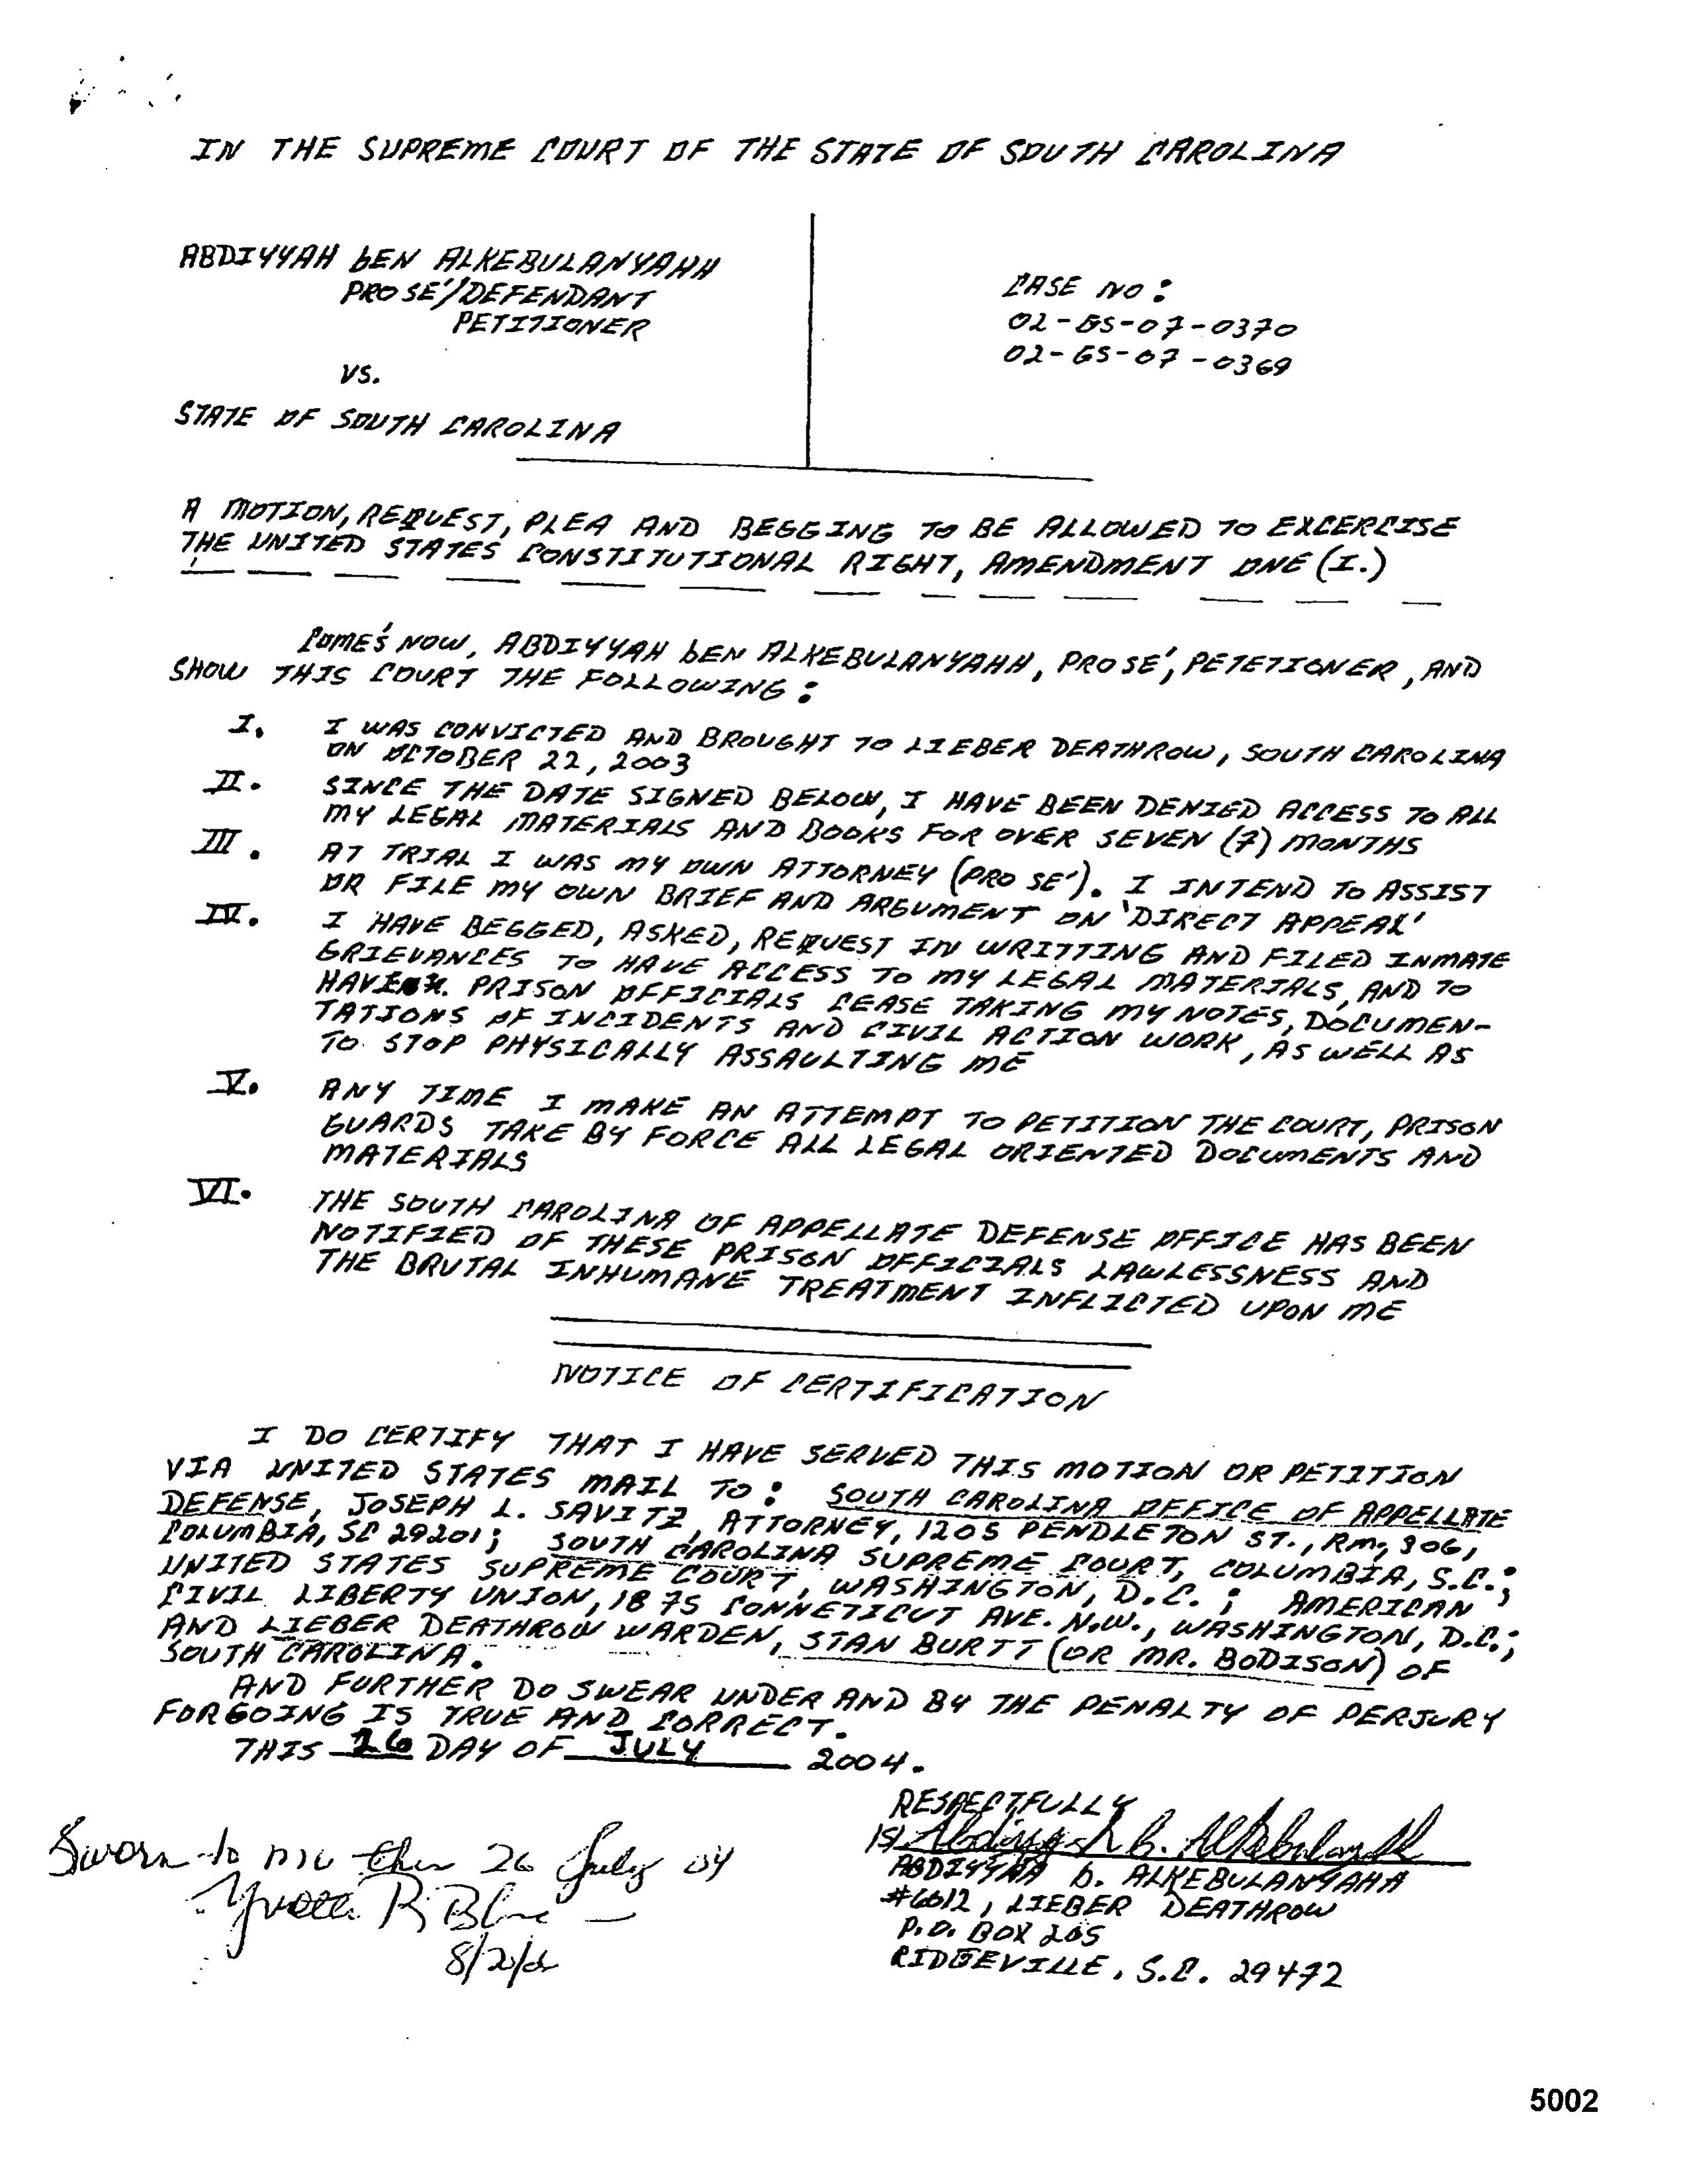 IN THE SUPREME COURT OF THE STATE OF SOUTH CAROLINA
ABDIYYAH bEN ALKEBULANYAHH
PRO SE'/DEFENDANT
PETITIONER
VS.
STATE OF SOUTH CAROLINA
CASE NO:
02-GS-07-0370
02-GS-07-0369
A MOTION, REQUEST, PLEA AND BEGGING TO BE ALLOWED TO EXCERCISE
THE UNITED STATES CONSTITUTIONAL RIGHT, AMENDMENT ONE (I.)
COME'S NOW, ABDIYYAH bEN ALKEBULANYAHH, PRO SE', PETETIONER, AND
SHOW THIS COURT THE FOLLOWING:
I. I WAS CONVICTED AND BROUGHT TO LIEBER DEATHROW, SOUTH CAROLINA
ON OCTOBER 22, 2003
II. SINCE THE DATE SIGNED BELOW, I HAVE BEEN DENIED ACCESS TO ALL
MY LEGAL MATERIALS AND BOOKS FOR OVER SEVEN (7) MONTHS
III. AT TRIAL I WAS MY OWN ATTORNEY (PRO SE'). I INTEND TO ASSIST
OR FILE MY OWN BRIEF AND ARGUMENT ON 'DIRECT APPEAL'
IV. I HAVE BEGGED, ASKED, REQUEST IN WRITTING AND FILED INMATE
GRIEVANCES TO HAVE ACCESS TO MY LEGAL MATERIALS, AND TO
HAVE PRISON OFFICIALS CEASE TAKING MY NOTES, DOCUMEN-
TATIONS OF INCIDENTS AND CIVIL ACTION WORK, AS WELL AS
TO STOP PHYSICALLY ASSAULTING ME
V. ANY TIME I MAKE AN ATTEMPT TO PETITION THE COURT, PRISON
GUARDS TAKE BY FORCE ALL LEGAL ORIENTED DOCUMENTS AND
MATERIALS
VI. THE SOUTH CAROLINA OF APPELLATE DEFENSE OFFICE HAS BEEN
NOTIFIED OF THESE PRISON OFFICIALS LAWLESSNESS AND
THE BRUTAL INHUMANE TREATMENT INFLICTED UPON ME
NOTICE OF CERTIFICATION
I DO CERTIFY THAT I HAVE SERVED THIS MOTION OR PETITION
VIA UNITED STATES MAIL TO: SOUTH CAROLINA OFFICE OF APPELLATE
DEFENSE, JOSEPH L. SAVITZ, ATTORNEY, 1205 PENDLETON ST., Rm, 306,
COLUMBIA, SC 29201; SOUTH CAROLINA SUPREME COURT, COLUMBIA, S.C.;
UNITED STATES SUPREME COURT, WASHINGTON, D.C.; AMERICAN
CIVIL LIBERTY UNION, 1875 CONNETICUT AVE. N.W., WASHINGTON, D.C.;
AND LIEBER DEATHROW WARDEN, STAN BURTT (OR MR. BODISON) OF
SOUTH CAROLINA.
AND FURTHER DO SWEAR UNDER AND BY THE PENALTY OF PERJURY
FORGOING IS TRUE AND CORRECT.
THIS 26 DAY OF JULY 2004.
RESPECTFULLY
/S/ Abdiyyah b. Alkebulanyahh
ABDIYYHA b. ALKEBULANYAHA
#6012, LIEBER DEATHROW
P.O. BOX 205
RIDGEVILLE, S.C. 29472
Sworn to me this 26 July 04
Yvette R Blue
5002